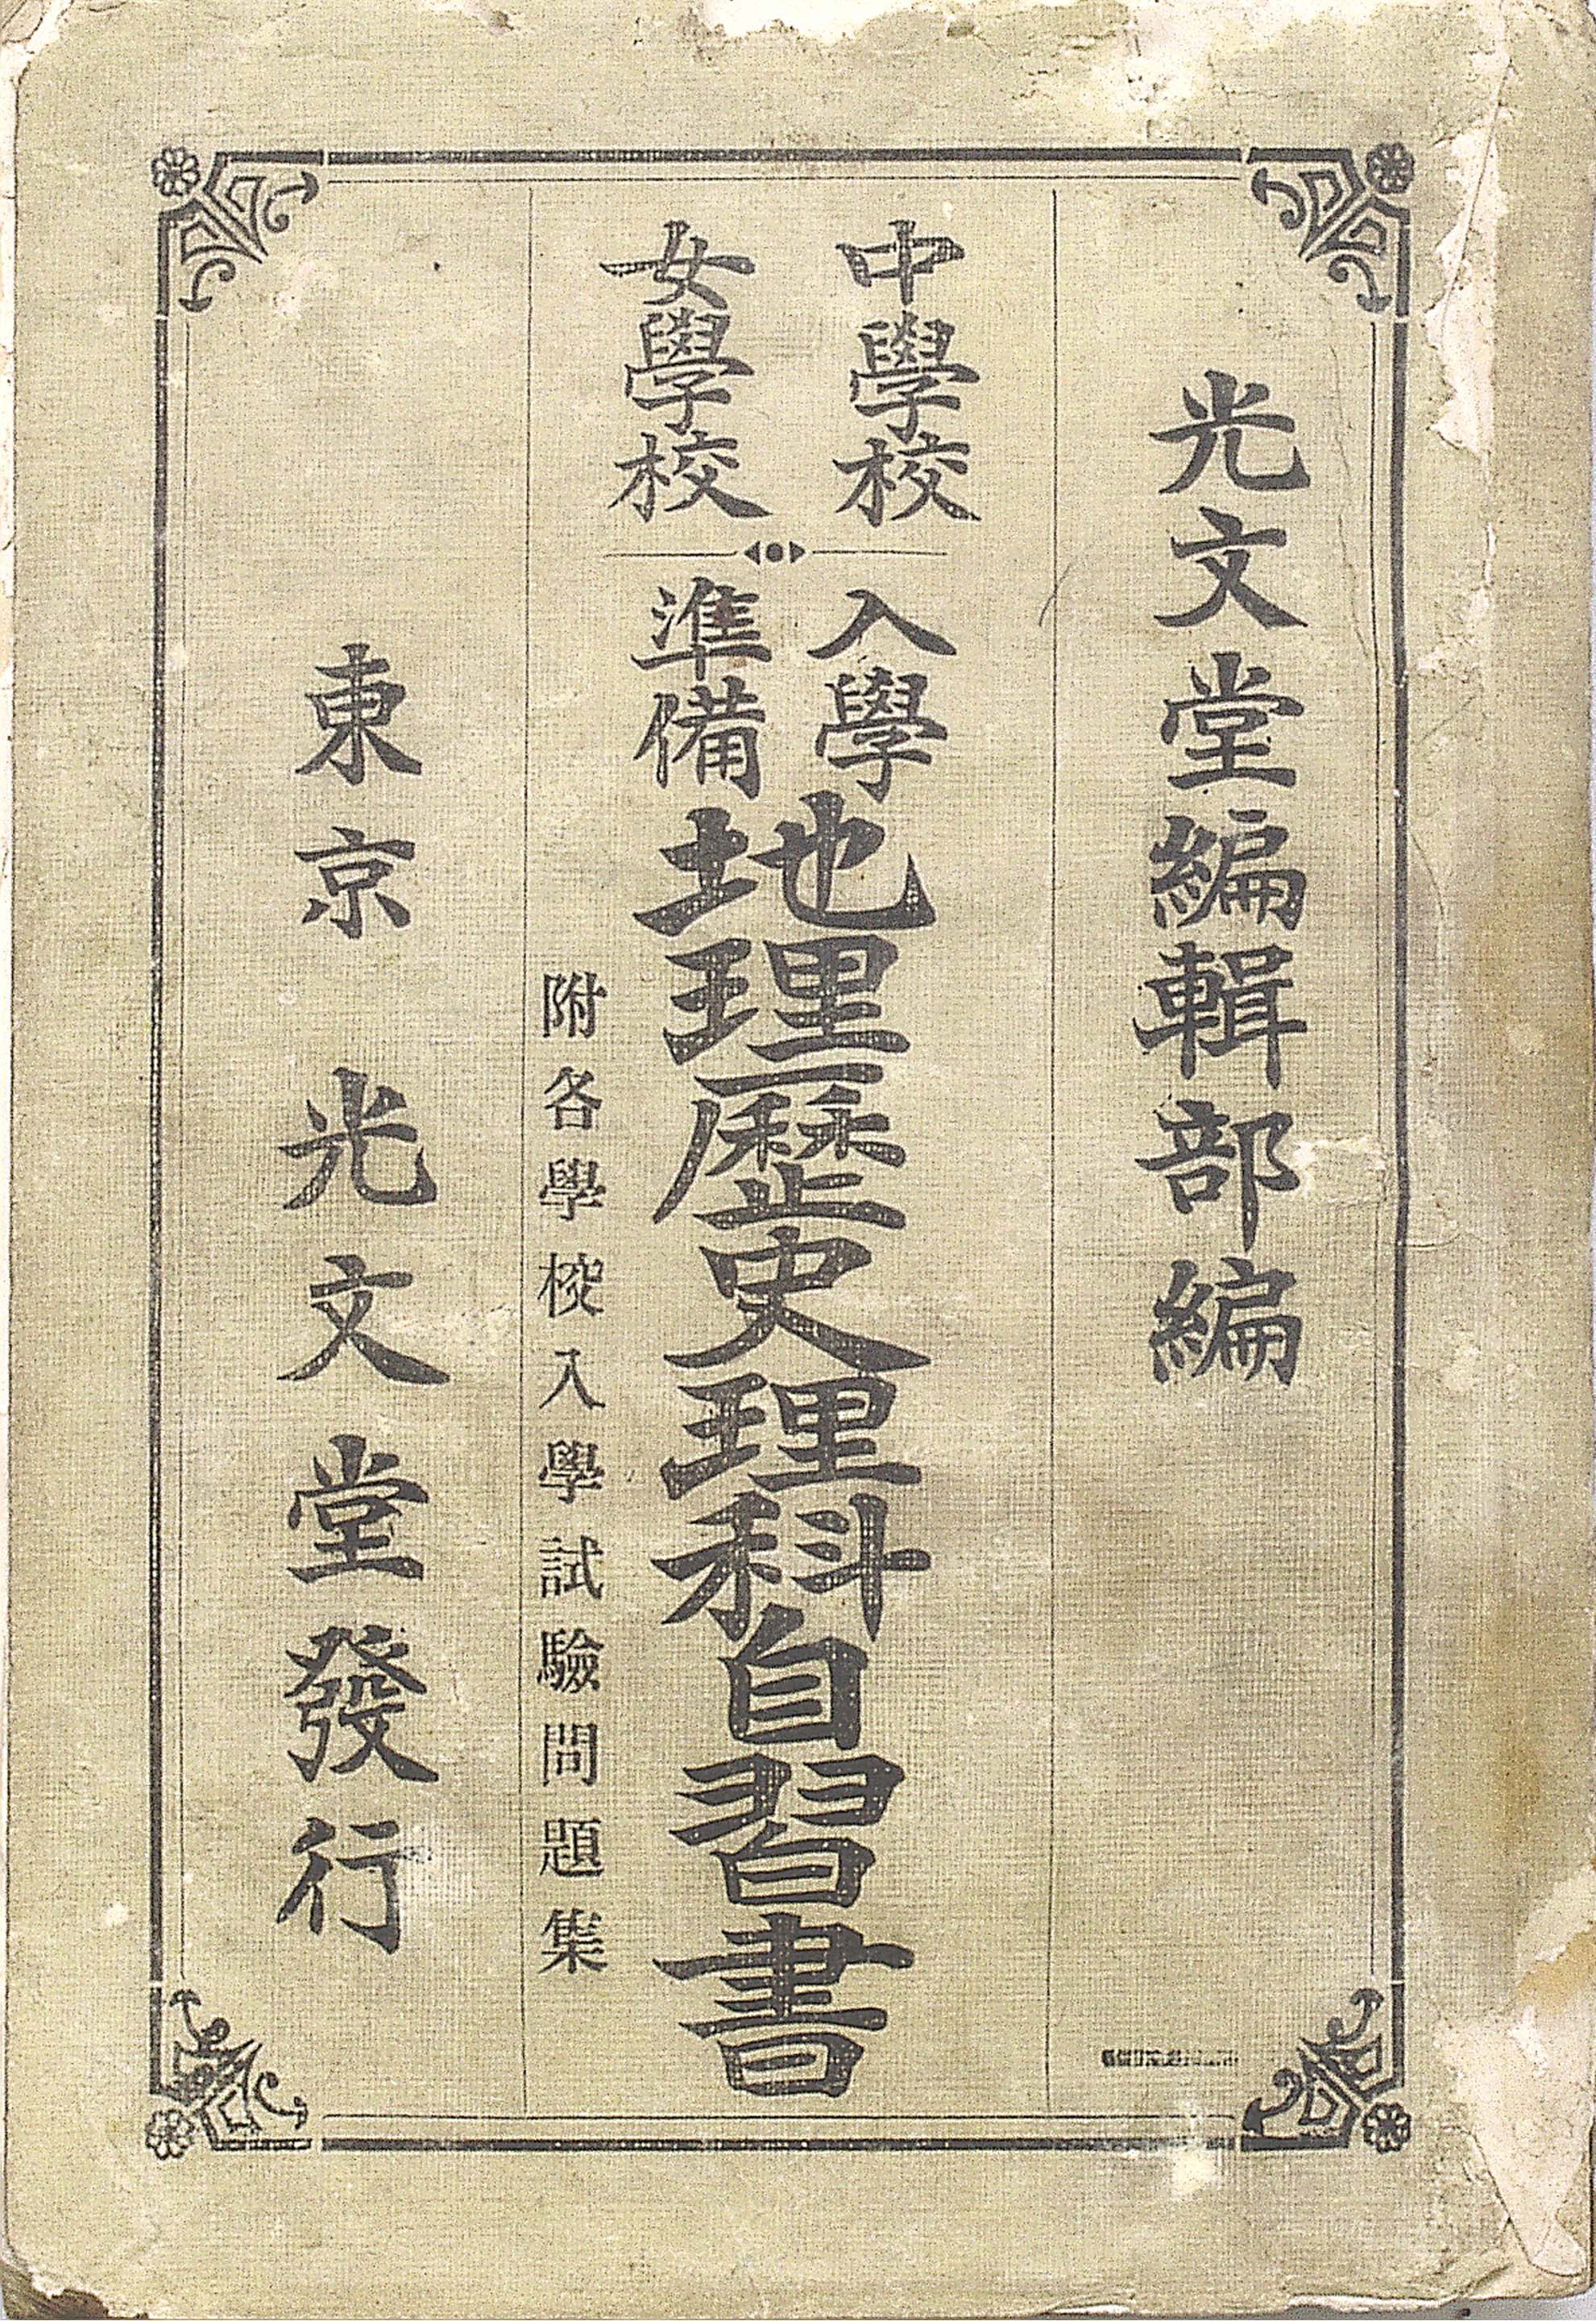 光文堂編輯部編
中學校
女學校
入學
準備
地理歷史理科自習書
附各學校入學試驗問題集
東京 光文堂發行